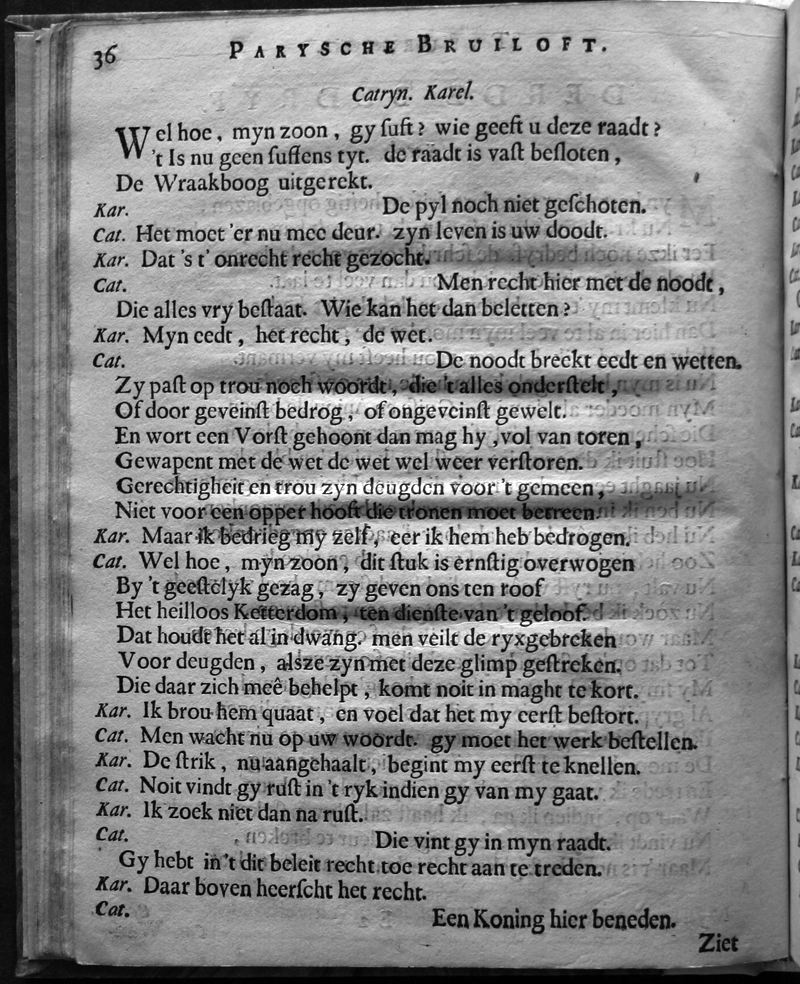 36
PARYSCHE BRUILOFT.
Catryn. Karel.
Wel hoe, myn zoon, gy ſuft? wie geeft u deze raadt?
't Is nu geen ſuffens tyt. de raadt is vaſt beſloten,
De Wraakboog uitgerekt.
Kar. De pyl noch niet geſchoten.
Cat. Het moet 'er nu mee deur. zyn leven is uw doodt.
Kar. Dat 's t' onrecht recht gezocht.
Cat. Men recht hier met de noodt,
Die alles vry beſtaat. Wie kan het dan beletten?
Kar. Myn eedt, het recht, de wet.
Cat. De noodt breekt eedt en wetten.
Zy paſt op trou noch woordt, die 't alles onderſtelt,
Of door geveinſt bedrog, of ongeveinſt gewelt.
En wort een Vorſt gehoont dan mag hy, vol van toren,
Gewapent met de wet de wet wel weer verſtoren.
Gerechtigheit en trou zyn deugden voor 't gemeen,
Niet voor een opper hooft die tronen moet betreen.
Kar. Maar ik bedrieg my zelf, eer ik hem heb bedrogen.
Cat. Wel hoe, myn zoon, dit ſtuk is ernſtig overwogen
By 't geeſtelyk gezag, zy geven ons ten roof
Het heilloos Ketterdom, ten dienſte van 't geloof.
Dat houdt het al in dwang. men veilt de ryxgebreken
Voor deugden, alsze zyn met deze glimp geſtreken.
Die daar zich meê behelpt, komt noit in maght te kort.
Kar. Ik brou hem quaat, en voel dat het my eerſt beſtort.
Cat. Men wacht nu op uw woordt. gy moet het werk beſtellen.
Kar. De ſtrik, nu aangehaalt, begint my eerſt te knellen.
Cat. Noit vindt gy ruſt in 't ryk indien gy van my gaat.
Kar. Ik zoek niet dan na ruſt.
Cat. Die vint gy in myn raadt.
Gy hebt in 't dit beleit recht toe recht aan te treden.
Kar. Daar boven heerſcht het recht.
Cat. Een Koning hier beneden.
Ziet